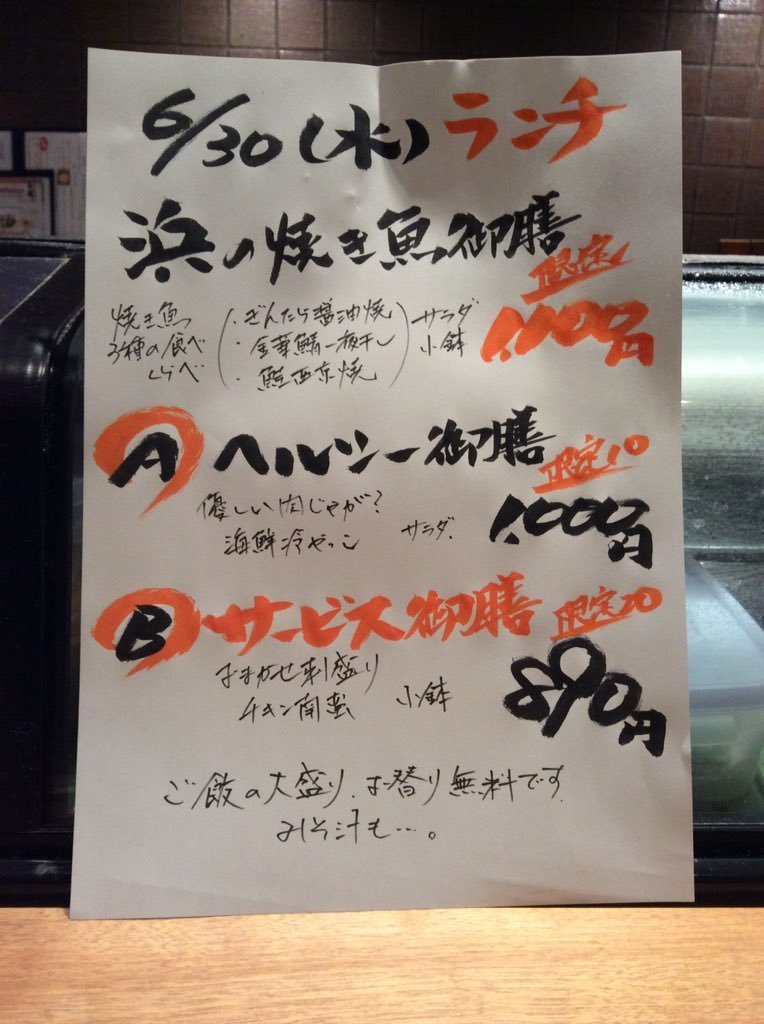 6/30(水)ランチ
浜の焼き魚御膳
限定
焼き魚
3種の食べ
くらべ
・ぎんだら醤油焼
・金華鯖一夜干し
・鮭西京焼
サラダ
小鉢
1,100円
A ヘルシー御膳
限定10
優しい肉じゃが?
海鮮冷やっこ
サラダ
1,000円
B サービス御膳
限定20
おまかせ刺盛り
チキン南蛮
小鉢
890円
ご飯の大盛り、お替り無料です
みそ汁も…。